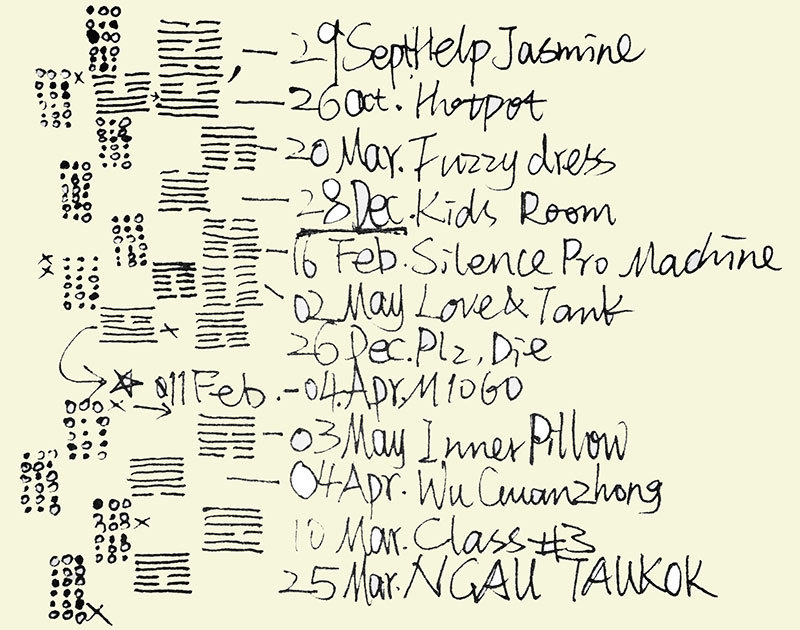 29 Sept. Help Jasmine
26 Oct. Hotpot
20 Mar. Fuzzy dress
28 Dec. Kids Room
16 Feb. Silence Pro Machine
02 May Love & Tank
26 Dec. Plz, Die
011 Feb. - 04. Apr. M1060
03 May Inner Pillow
04 Apr. Wu Guanzhong
10 Mar. Class #3
25 Mar. NGAU TAUKOK